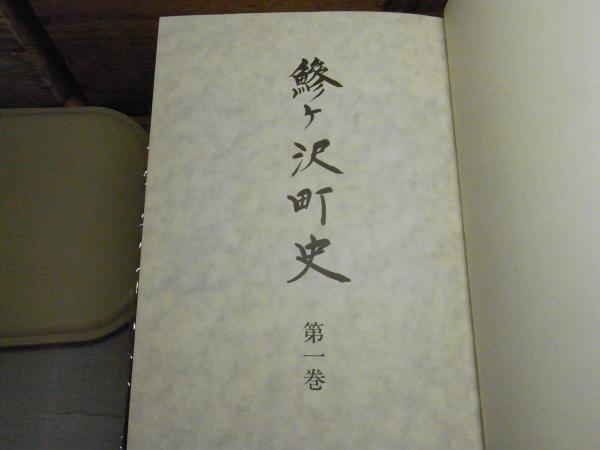 鰺ヶ沢町史
第一巻